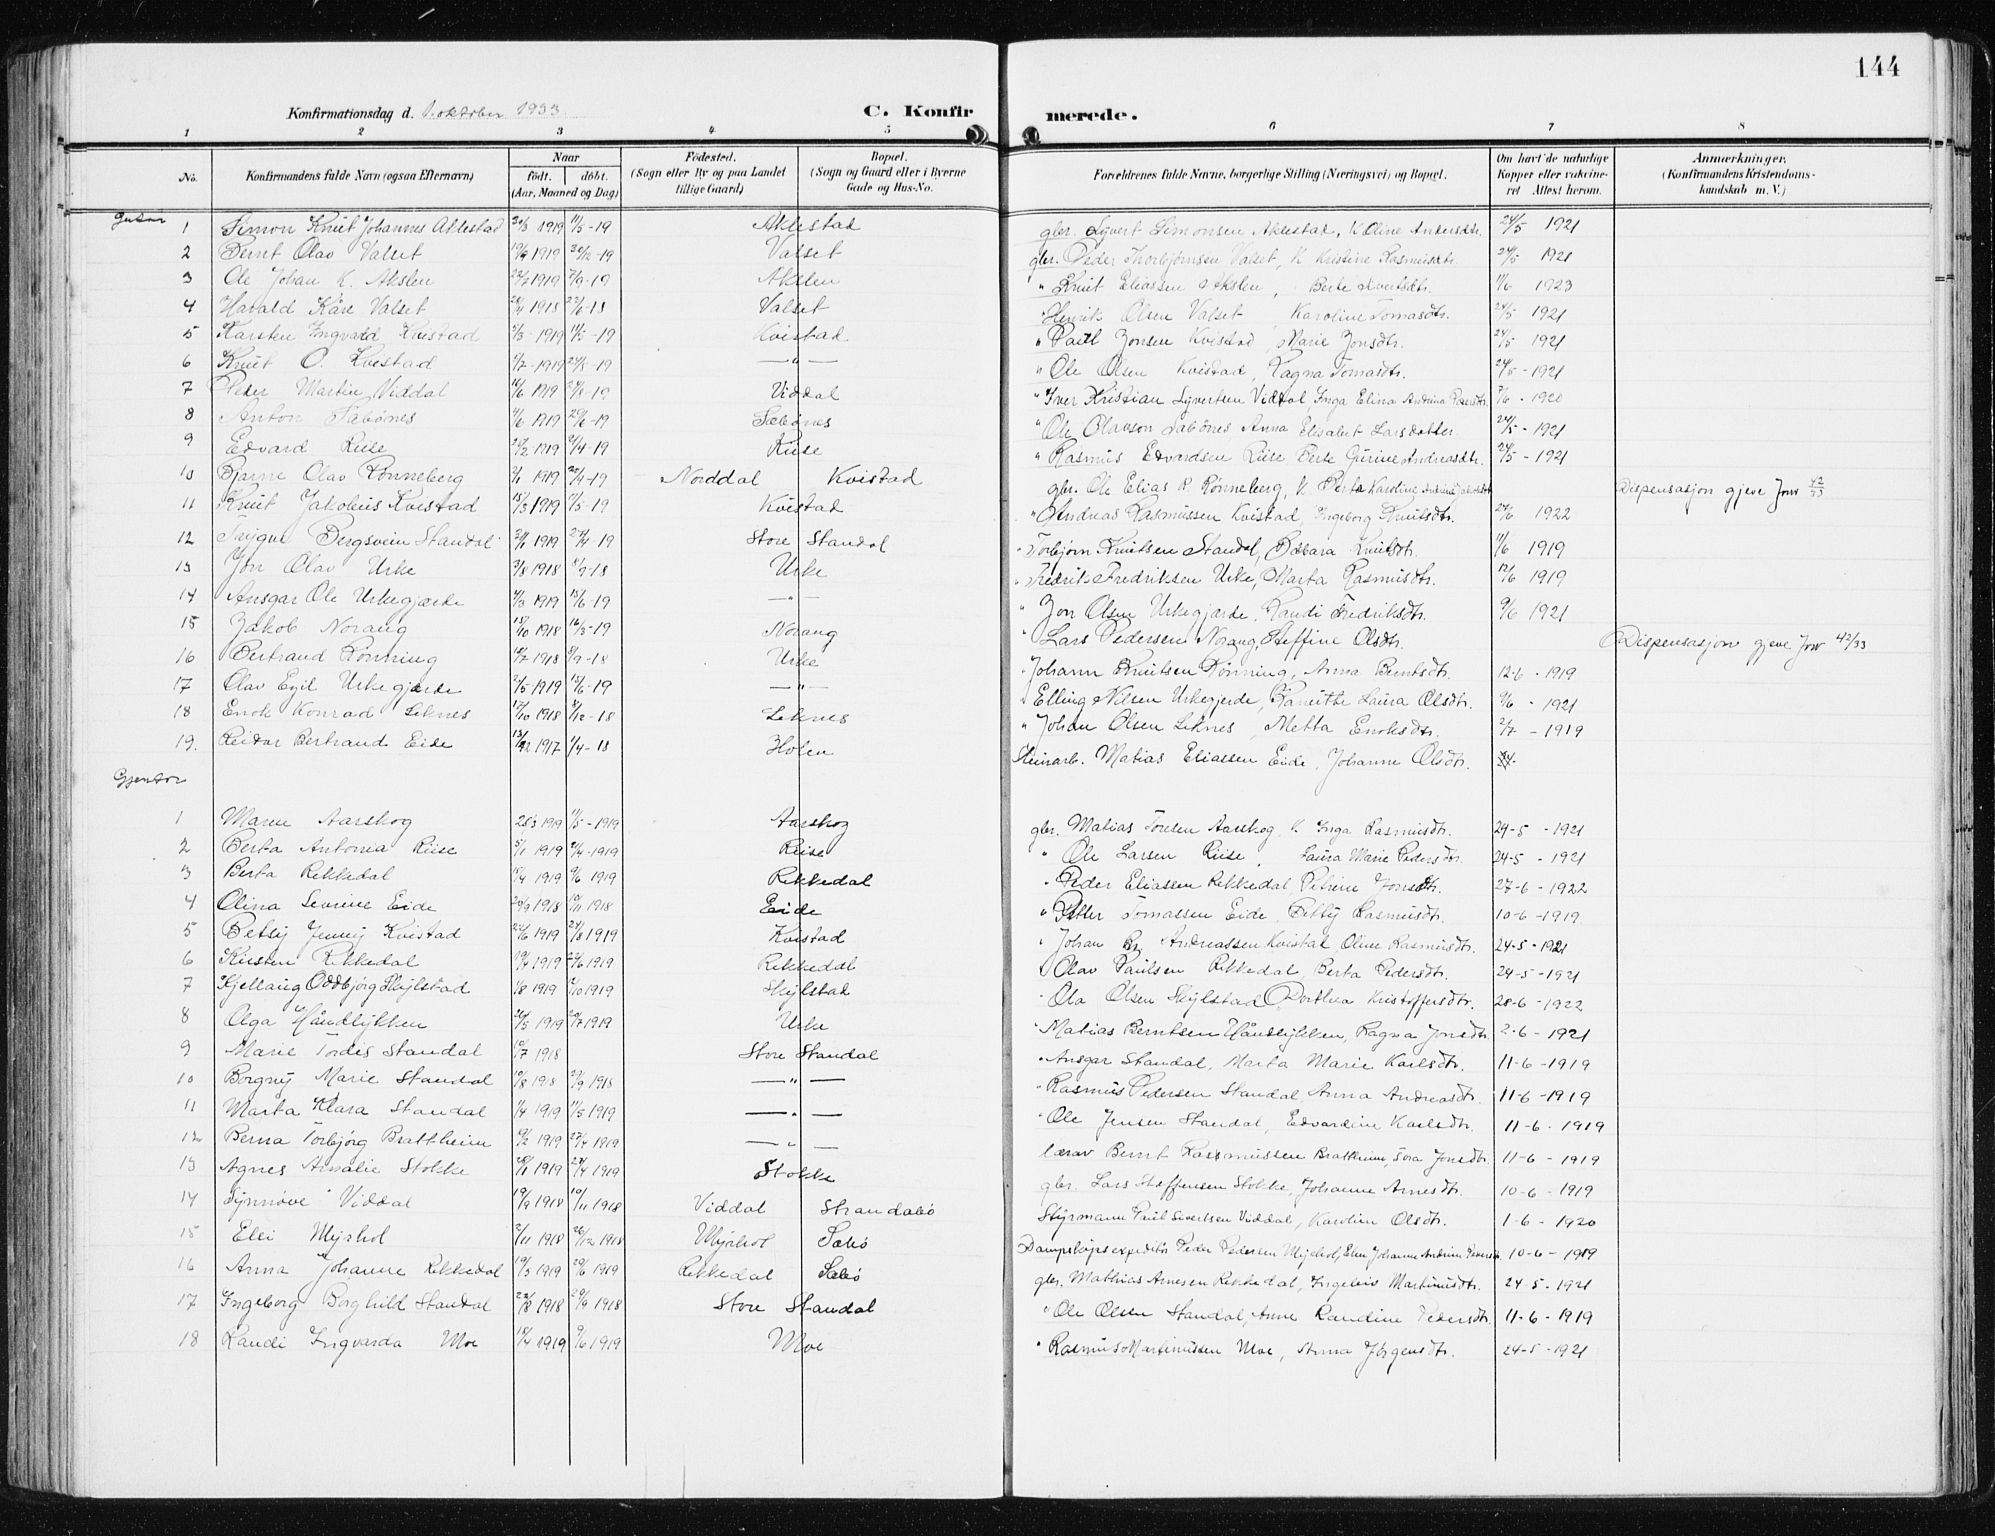 144
Konfirmationsdag d. 1. oktober 1933. C. Konfirmerede.
1 2 3 4 5 6 7 8
No. Konfirmandens fulde Navn (ogsaa Efternavn) Naar født. døbt. (Aar, Maaned og Dag) Fødested. (Sogn eller By og paa Landet tillige Gaard) Bopæl. (Sogn og Gaard eller i Byerne Gade og Hus-No. Forældrenes fulde Navne, borgerlige Stilling (Næringsvei) og Bopæl. Om havt de naturlige Kopper eller vakcineret Attest herom. Anmærkninger. (Konfirmandens Kristendomskundskab m. V.)
Gutar
1 Simon Knut Johannes Aklestad 30/3 1919 11/5-19 Aklestad gbr. Syvert Simonsen Aklestad, K. Oline Andersdtr. 24/5 1921
2 Bernt Olav Valset 1919 30/12-19 Valset gbr. Peder Thorbjørnsen Valset, K. Kristine Rasmusdtr. 24/5 1921
3 Ole Johan K. Akslen 1919 7/9-19 Akslen " Knut Eliassen Akslen, Berte Knutsdtr. 11/6 1923
4 Harald Kåre Valset 1918 Valset Henrik Olsen Valset, Karoline Tomasdtr. 24/5 1921
5 Karsten Ingvald Kvistad 1919 11/5-19 Kvistad " Paul Jonsen Kvistad, Marie Jonsdtr. 24/5 1921
6 Knut O. Kvistad 1919 24/8-19 — " — " Ole Olsen Kvistad, Ragna Tomasdtr. 24/5-1921
7 Peder Martin Viddal 1919 -19 Viddal " Iver Kristian Syvertsen Viddal, Inga Elina Andrina Pedersdtr. 7/6 - 1920
8 Anton Sæbönes 1919 29/6-19 Sæbönes " Ole Olavson Sæbönes Anna Elisabet Larsdatter 24/5-1921
9 Edvard Riise 1919 /4-19 Riise " Rasmus Edvardsen Riise Berte Gurine Andreasdtr. 24/5-1921
10 Bjarne Olav Rönneberg 1919 /4-19 Norddal Kvistad gbr. Ole Elias R. Rønneberg, K. Berta Karoline Andrine Jakobsdtr. Dispensasjon gjeve Jour 42/33
11 Knut Jakobus Kvistad 15/3 1919 11/5-19 Kvistad " Andreas Rasmussen Kvistad, Ingeborg Knutsdtr. 27/6 1922
12 Trygve Bergsvein Standal 1919 27/4-19 Store Standal " Torbjørn Knutsen Standal, Barbara Knutsdtr. 11/6 1919
13 Jon Olav Urke 3/8 1918 8/9-18 Urke " Fredrik Fredriksen Urke, Marta Rasmusdtr. 12/6 1919
14 Ansgar Ole Urkegjærde 1919 15/6-19 — " — " Jon Olsen Urkegjærde, Randi Fredriksdtr. 9/6 1921
15 Jakob Norang 15/10 1918 16/3-19 Norang " Lars Pedersen Norang, Steffine Olsdtr. Dispensasjon gjeve Jour 42/33
16 Bertrand Rönning 1918 8/9-18 Urke " Johann Knutsen Rønning, Anna Berntsdtr. 12-6-1919
17 Olav Egil Urkegjærde 2/5 1919 15/6-19 — " — " Elling Nilsen Urkegjerde, Laura Olsdtr. 9/6 - 1921
18 Enok Konrad Leknes 17/10 1918 8/12-18 Leknes " Johan Olsen Leknes, Metta Enoksdtr. 2/7 - 1919
19. Reidar Bertrand Eide 1917 1/4-18 Holen Steinarb. Matias Eliassen Eide, Johanne Olsdtr.
Gjentor
1 Marie Aarskog 25/3 1919 11/5-1919 Aarskog gbr. Matias Toresen Aarskog K. Inga Rasmusdtr. 24-5-1921
2 Berta Antonia Riise 5/1 1919 /4-1919 Riise " Ole Larsen Riise, Laura Marie Pedersdtr. 24-5-1921
3 Berta Rekkedal 1919 9/6 1919 Rekkedal " Peder Eliassen Rekkedal, Petrine Jonsdtr. 27-6-1922
4 Olina Severine Eide 1918 10/11 1918 Eide " Petter Tomassen Eide, Betty Rasmusdtr. 10-6-1919
5 Betsy Jenny Kvistad 1919 24/8 1919 Kvistad " Johan Br. Andreassen Kvistad, Oline Rasmusdtr. 24-5-1921
6 Kirsten Rekkedal 1919 1919 Rekkedal " Olav Paulsen Rekkedal, Berta Pedersdtr. 24-5-1921
7 Kjellaug Oddbjørg Skylstad 1/8 1919 /10 1919 Skylstad " Ola Olsen Skylstad Dorthea Kristoffersdtr. 28-6-1922
8 Olga Håndlykken 26/5 1919 1919 Urke " Matias Berntsen Håndlykken, Ragna Jonsdtr. 2-6-1921
9 Marie Tordis Standal 10/7 1918 Store Standal " Ansgar Standal, Marta Marie Karlsdtr. 11-6-1919
10 Borgny Marie Standal 10/8 1918 29/9 1918 — " — " Rasmus Pedersen Standal, Anna Andreasdtr. 11-6-1919
11 Marta Klara Standal 1/4 1919 11/5 1919 — " — " Ole Jensen Standal, Edvardine Karlsdtr. 11-6-1919
12 Berna Torbjørg Brattheim 9/2 1919 27/4 1919 — " — lærar Bernt Rasmussen Brattheim, Tora Jonsdtr. 11-6-1919
13 Agnes Amalie Stokke 1919 27/4 1919 Stokke gbr. Lars Steffensen Stokke, Johanne Arnesdtr. 10-6-1919
14 Synnøve Viddal 19/9 1918 10/11 1918 Viddal Strandabö Styrmann Paul Sivertsen Viddal, Karoline Olsdtr. 1-6-1920
15 Elli Myshol 2/11 1918 26/12 1918 Myshol Sæbö Dampskipsexpeditör Peder Pedersen Myshol, Elen Johanne Andrine Pedersdtr. 10-6-1919
16 Anna Johanne Rekkedal 19/3 1919 29/6 1919 Rekkedal Sæbö gbr. Mathias Arnesen Rekkedal, Ingeleiv Martinusdtr. 24-5-1921
17 Ingeborg Borghild Standal 22/8 1918 29/9 1918 Store Standal " Ole Olsen Standal, Anne Randine Pedersdtr. 11-6-1919
18 Randi Ingvarda Moe 18/4 1919 9/6 1919 Moe " Rasmus Martinussen Moe, Anna Jörgensdtr. 24-5-1921